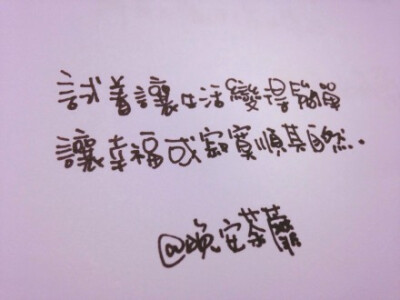 試着讓生活變得簡單
讓幸福或寂寞順其自然..
@晚安荼蘼